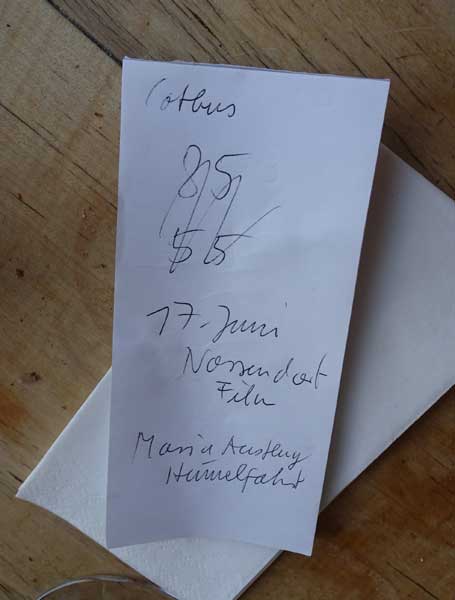 Cotbus
85
55
17. Juni
Nossendorf
Film
Maria Ausflug
Himmelfahrt